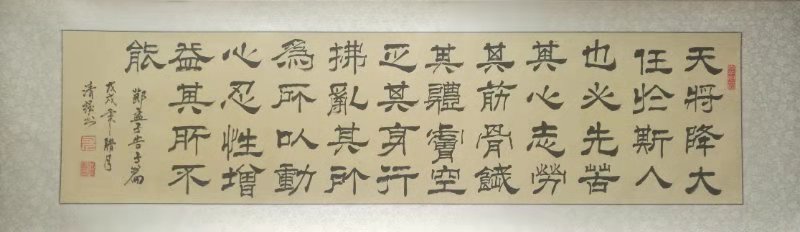 天將降大
任於斯人
也必先苦
其心志勞
其筋骨餓
其體膚空
乏其身行
拂亂其所
爲所以動
心忍性增
益其所不
能
孟子告子篇
戊戌年腊月